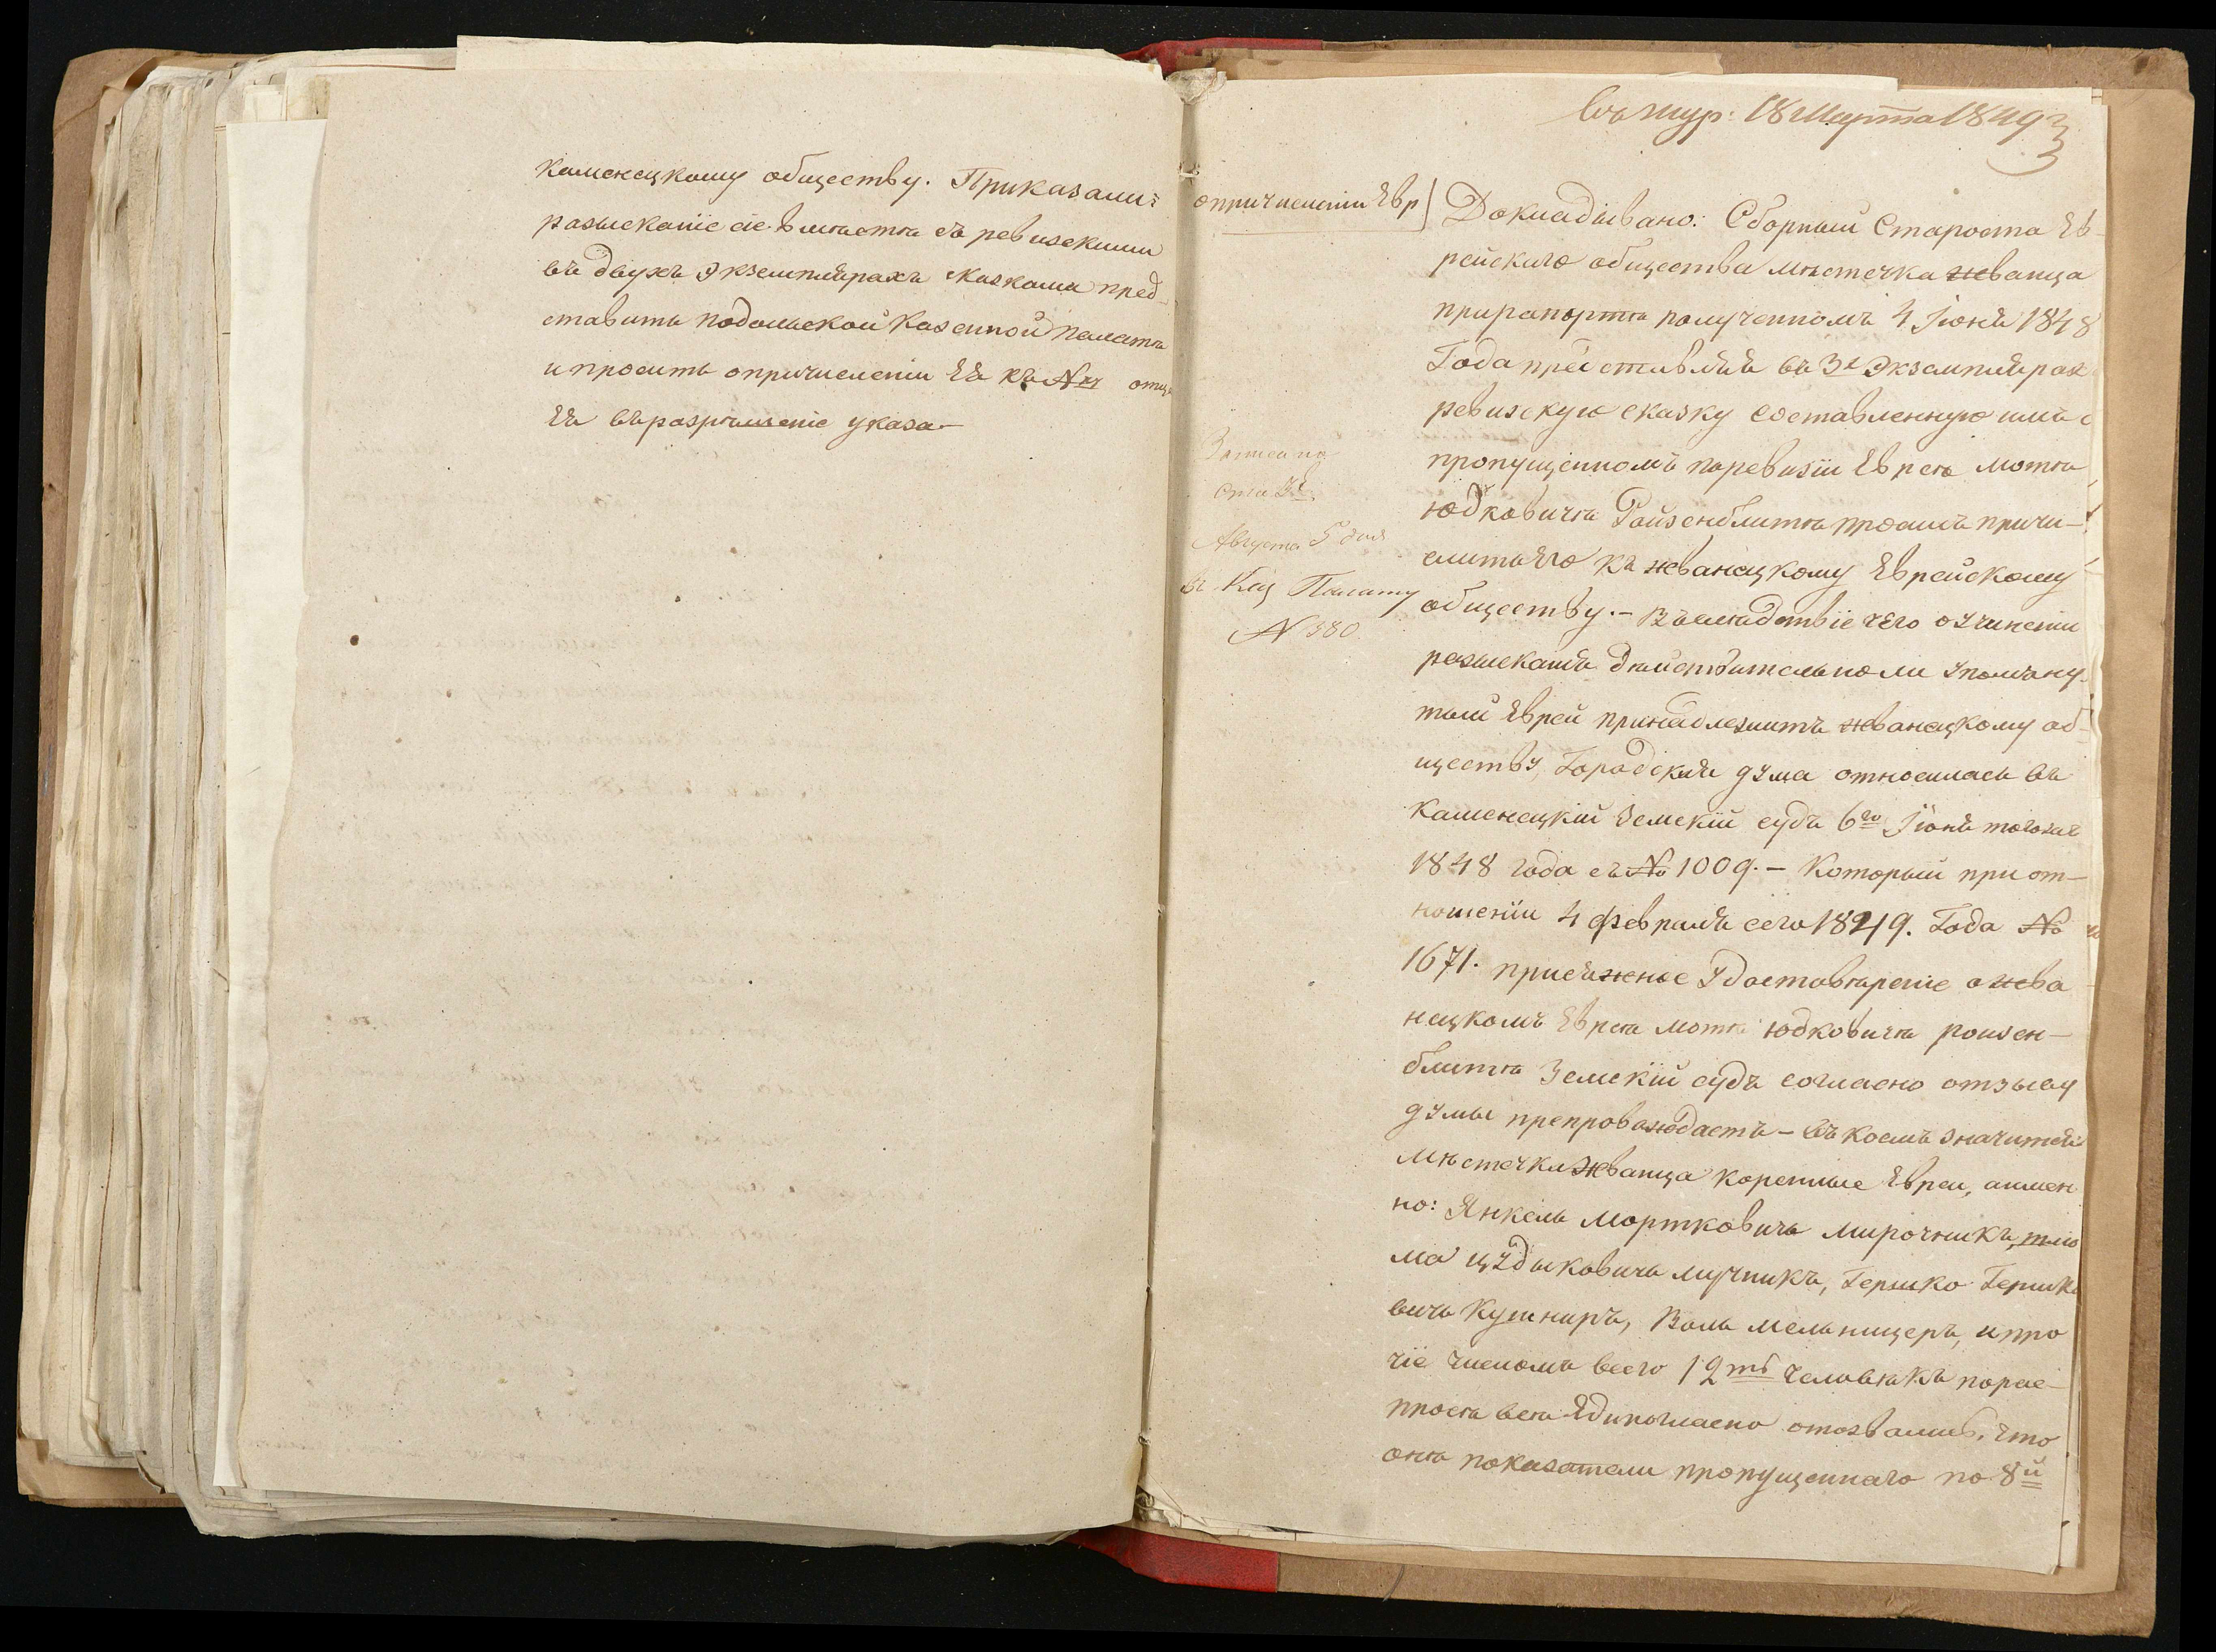 каменецкому обществу. Приказали:
розысканіе сіе вмѣстѣ съ ревизскими
въ двухъ Экземплярахъ сказками пред-
ставить подольской казенной палатѣ
и просить опричисленіи Ея къ отца
Ея въ разрѣшеніе указа.—
Въ жур: 18 Марта 1849 г
опричисленіи Евр
Докладывано: Сборный Староста Ев-
рейскаго общества мѣстечка жванца
при рапортѣ полученномъ 4 Іюня 1848
Года представляя въ 3х Экземплярах
ревизскую сказку составленную имъ о
пропущенномъ по ревизіи Евреѣ Мотѣ
юдковичѣ Ройзенблитѣ просилъ причи-
слить Его къ жванецкому Еврейскому
обществу.— Въ слѣдствіе чего о учиненіи
розысканія дѣйствительно ли упомяну-
тый Еврей принадлежитъ жванецкому об-
ществу, Городская дума относилась въ
Каменецкій Земскій судъ 6го Іюня тогоже
1848 года съ № 1009.— Который при от-
ношеніи 4 февраля сего 1849. Года №
1671. присяжное Удостовѣреніе о жва-
нецкомъ Евреѣ Мотѣ юдковичѣ ройзен-
блитѣ Земскій судъ согласно отзыву
думы препровождаетъ— въ коемъ значится
мѣстечка Жванца коренные Евреи, а имен-
но: Янкель Мортковичъ Мирочникъ, шлио
ма цудыковичъ лучникъ, Гершко Гершко
вичъ Кушниръ, Волъ мельницеръ, и про
чіе числомъ всего 12ть человѣкъ по рас-
просѣ всѣ Единогласно отозвались, что
онѣ показатели пропущеннаго по 8й
Записано
Августа 5 дня
въ Каз Палату
№ 380